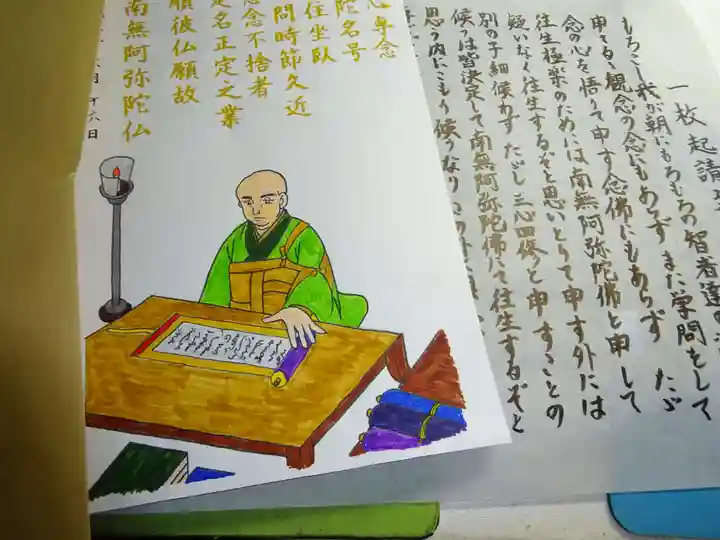 一枚起請
もろこし我が朝にもろもろの智者達の
申さるゝ観念の念にもあらず また学問をして
念の心を悟りて申す念佛にもあらず たゞ
往生極楽のためには南無阿弥陀佛と申して
疑いなく往生するぞと思いとりて申す外には
別の子細候わず たゞし三心四修と申すことの
候うは皆決定して南無阿弥陀佛にて往生するぞと
思う内にこもり候うなり
心専念
陀名号
住坐臥
問時節久近
念念不捨者
是名正定之業
順彼仏願故
南無阿弥陀仏
月 十六日